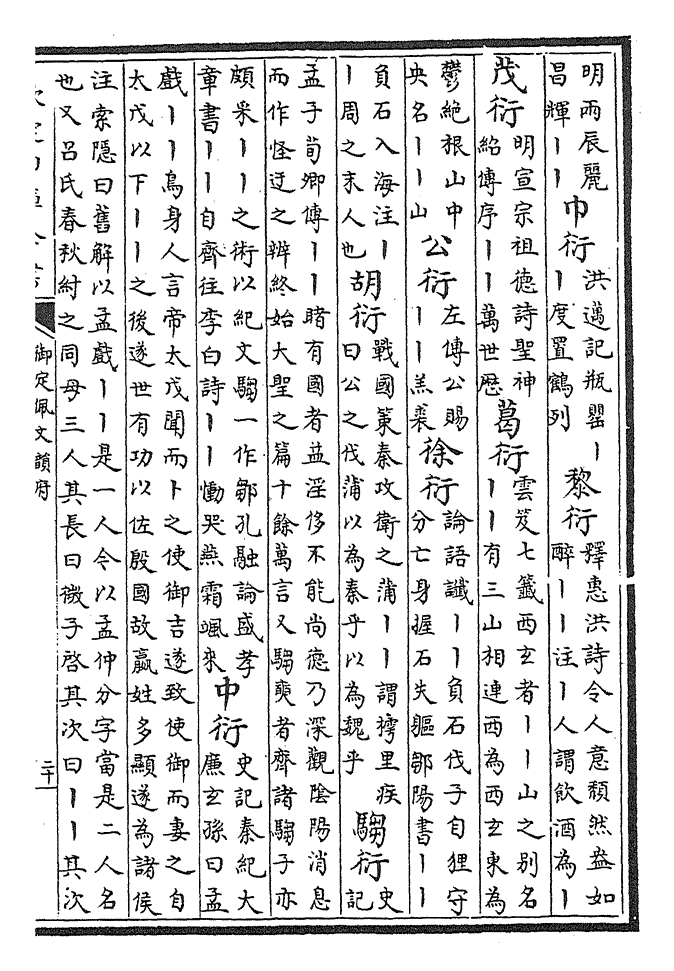 明兩辰麗
昌輝丨丨
巾衍
洪邁記瓶罌丨
丨度置鶴列
黎衍
釋惠洪詩令人意頹然盎如
醉丨丨注丨人謂飲酒為丨
茂衍
明宣宗祖德詩聖神
紹傳序丨丨萬世歷
葛衍
雲笈七籤西玄者丨丨山之别名
丨丨有三山相連西為西玄東為
鬱絶根山中
央名丨丨山
公衍
左傳公賜
丨丨羔裘
徐衍
論語讖丨丨負石伐子自狸守
分亡身握石失軀鄒陽書丨丨
負石入海注丨
丨周之末人也
胡衍
戰國策秦攻衛之蒲丨丨謂摴里疾
曰公之伐蒲以為秦乎以為魏乎
騶衍
史
記
孟子荀卿傳丨丨睹有國者益淫侈不能尚德乃深觀陰陽消息
而作怪迂之辨終始大聖之篇十餘萬言又騶奭者齊諸騶子亦
頗采丨丨之術以紀文騶一作鄒孔融論盛孝
章書丨丨自齊往李白詩丨丨慟哭燕霜颯來
中衍
史記秦紀大
廉玄孫曰孟
戲丨丨鳥身人言帝太戊聞而卜之使御吉遂致使御而妻之自
太戊以下丨丨之後遂世有功以佐殷國故嬴姓多顯遂為諸侯
注索隱曰舊解以孟戲丨丨是一人今以孟仲分字當是二人名
也又呂氏春秋紂之同母三人其長曰微子啓其次曰丨丨其次
御定佩文韻府
二十